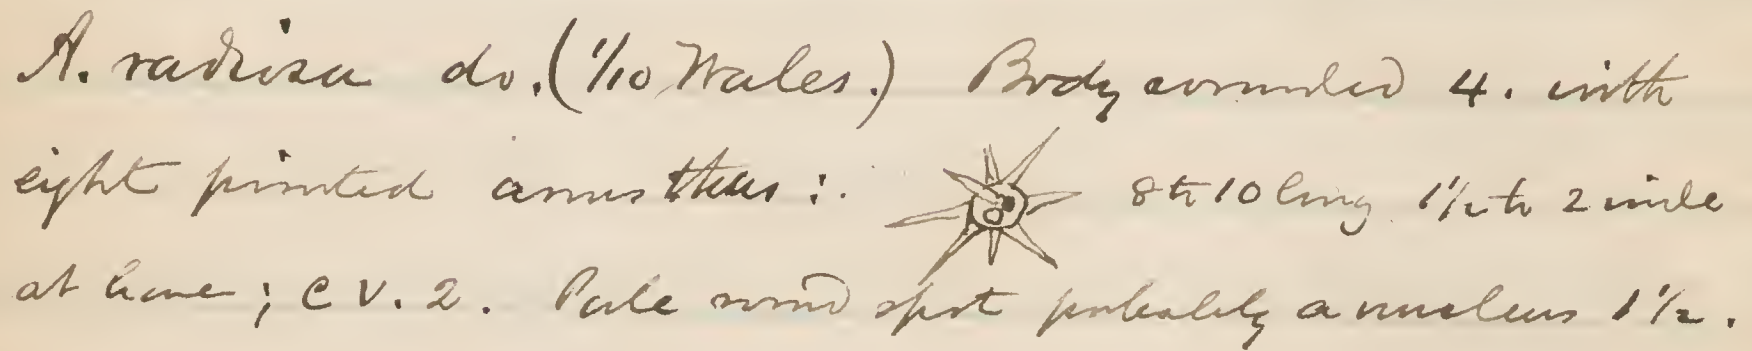 A. radiosa do. (1/10 Wales.) Body rounded 4. with
eight pointed arms thus :. 8 to 10 long 1 1/2 to 2 wide
at base ; C V. 2. Pale round spot probably a nucleus 1 1/2.